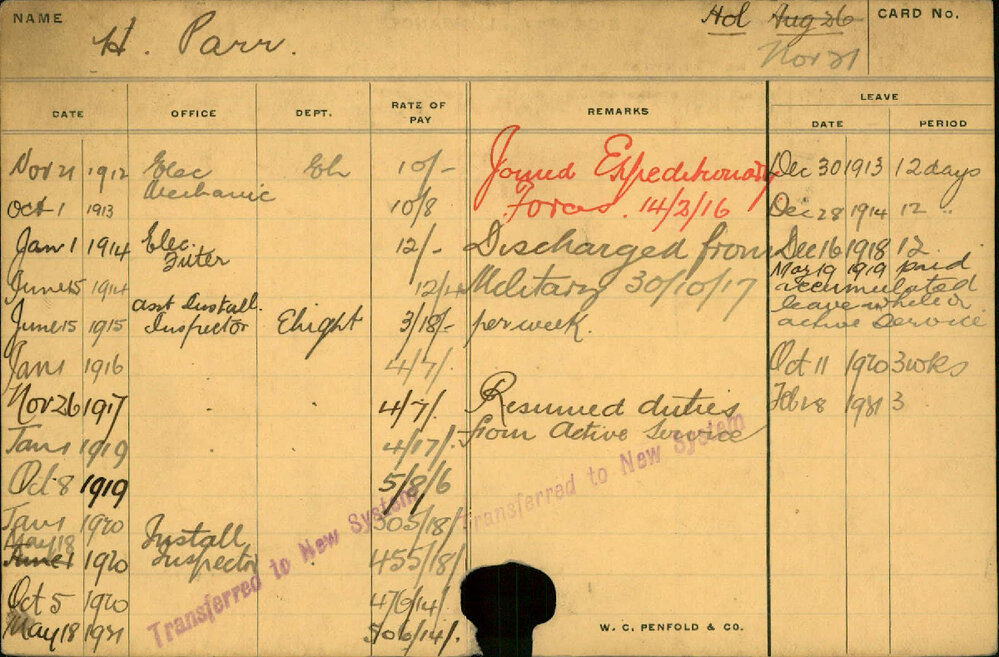 NAME
H. Parr.
Hol Aug 26
Nov 21
CARD No.
DATE OFFICE DEPT. RATE OF PAY REMARKS LEAVE
DATE PERIOD
Nov 21 1912 Elec Mechanic 10/- Joined Expeditionary Dec 30 1913 12 days
Oct 1 1913 10/8 Forces. 14/2/16 Dec 28 1914 12 "
Jan 1 1914 Elec. Fitter 12/- Discharged from Dec 16 1918 12
June 15 1914 Military 30/10/17 Mar 19 1919 paid
accumulated
leave while on
active service
June 15 1915 asst Install. Inspector Elight 3/18/- per week.
Jan 1 1916 4/7/. Oct 11 1920 3 wks
Nov 26 1917 4/7/. Resumed duties Feb 28 1921 3
Jan 1 1919 4/17/. from Active Service
Oct 8 1919 5/8/6
Jan 1 1920 305/18/
May 18
June 1 1920 Install Inspector 455/18/
Oct 5 1920 476/14/
May 18 1921 506/14/.
Transferred to New System
Transferred to New System
W. C. PENFOLD & CO.